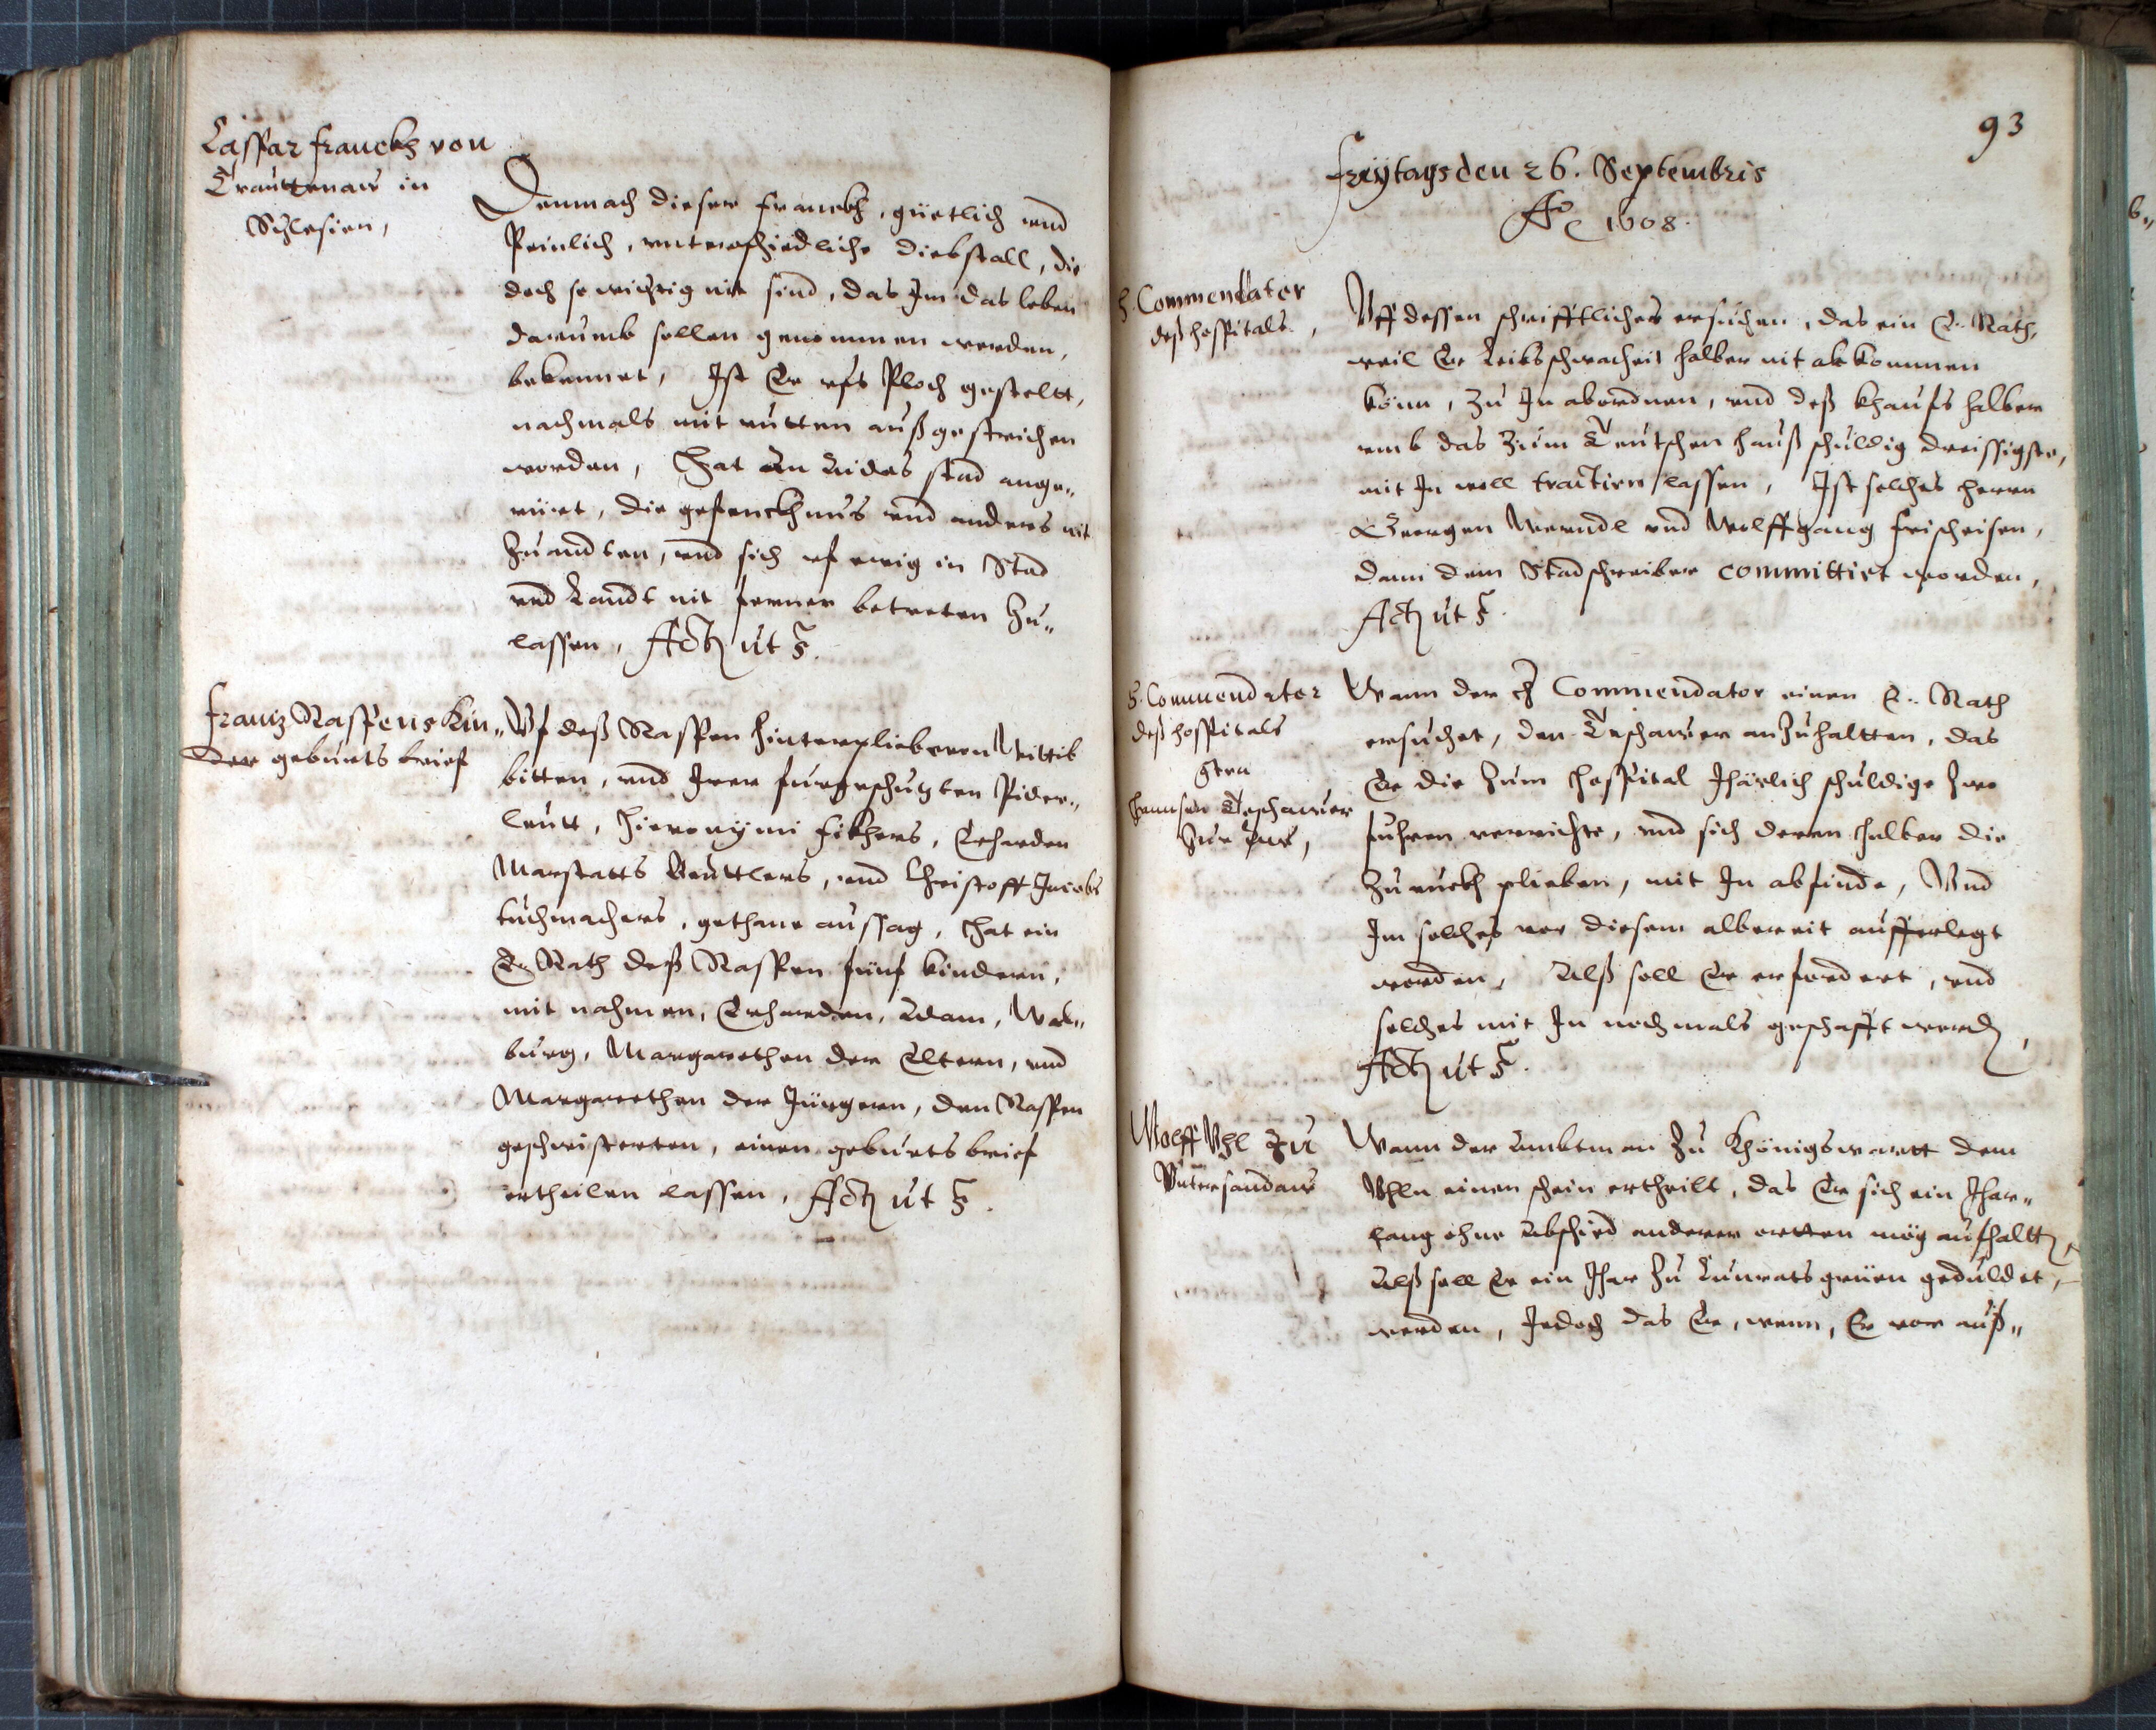 Caspar Franckh von
Trauttenaw in
Schlesien,
Demnach dieser Franckh, güetlich vnd
Peinlich, vnterschiedliche diebstall, die
doch so wichtig nit sind, das Im das leben
darumb sollen genommen werden,
bekennet, Ist Er vfs Ploch gestellt,
nachmals mit rutten außgestrichen
worden, Hat an Aides stad ange„
rüret, die gefenckhnus vnd anders nit
Zu andten, vnd sich vf ewig in Stad
vnd Landt nit ferner betreten Zu„
lassen, Act ut s.
Frantz Raspens Kin„
der geburts brief
Vf deß Raspen hinterpliebenen Wittib
bitten, vnd Irer furgeschutzten Pider„
leutt, Hieronymi Fikhers, Erharden
Marstatts Beuttlers, vnd Christoff Jacobs
tuchmachers, gethane aussag, Hat ein
Er. Rath deß Raspen fünf kindern,
mit nahmen, Erharden, Adam, Wal„
burg, Margarethen der Eltern, vnd
Margarethen der Jüngern, den Raspen
geschwisterten, einen geburts brief
ertheilen lassen, Act ut s.
93
Freytags den 26. Septembris
Ao 1608.
H. Commendator
deß hospitals,
Vff dessen schrifftliches ersuchen, das ein E. Rath,
weil Er Leibsschwacheit halber nit abkommen
könn, zu In abordnen, vnd deß khaufs halber
vmb das zum Teutschen hauß schuldig dreissigste,
mit In woll tractirn lassen, Ist solches herrn
Georgen Werndl vnd Wolffgang Frischeisen,
dann dem Stadschreiber committirt worden,
Act ut s.
H. Commendator
deß hospitals
gegen
Hannsen Teschawer
Wann der H. Commendator einen E. Rath
ersuchet, den Teschawer anzuhaltten, das
Er die zum Hospital Jhärlich schuldige zwo
fuhren verrichte, vnd sich deren halber die
Zuruckh plieben, mit In abfinde, Vnd
Im solches vor diesem albereit aufferlegt
worden, Alß soll Er erfordert, vnd
solches mit In nochmals geschafft werden,
Act ut s.
Wolff Vhl zu
Vntersandaw
Wann der Ambtman zu Khönigswartt dem
Vhln einen schein ertheilt, das Er sich ein Jhar„
lang ohne Abschied anderer ortten mög aufhaltten,
Alß soll Er ein Jhar zu Cunratsgrüen geduldet,
werden, Jedoch das Er, wenn, Er vor auß„